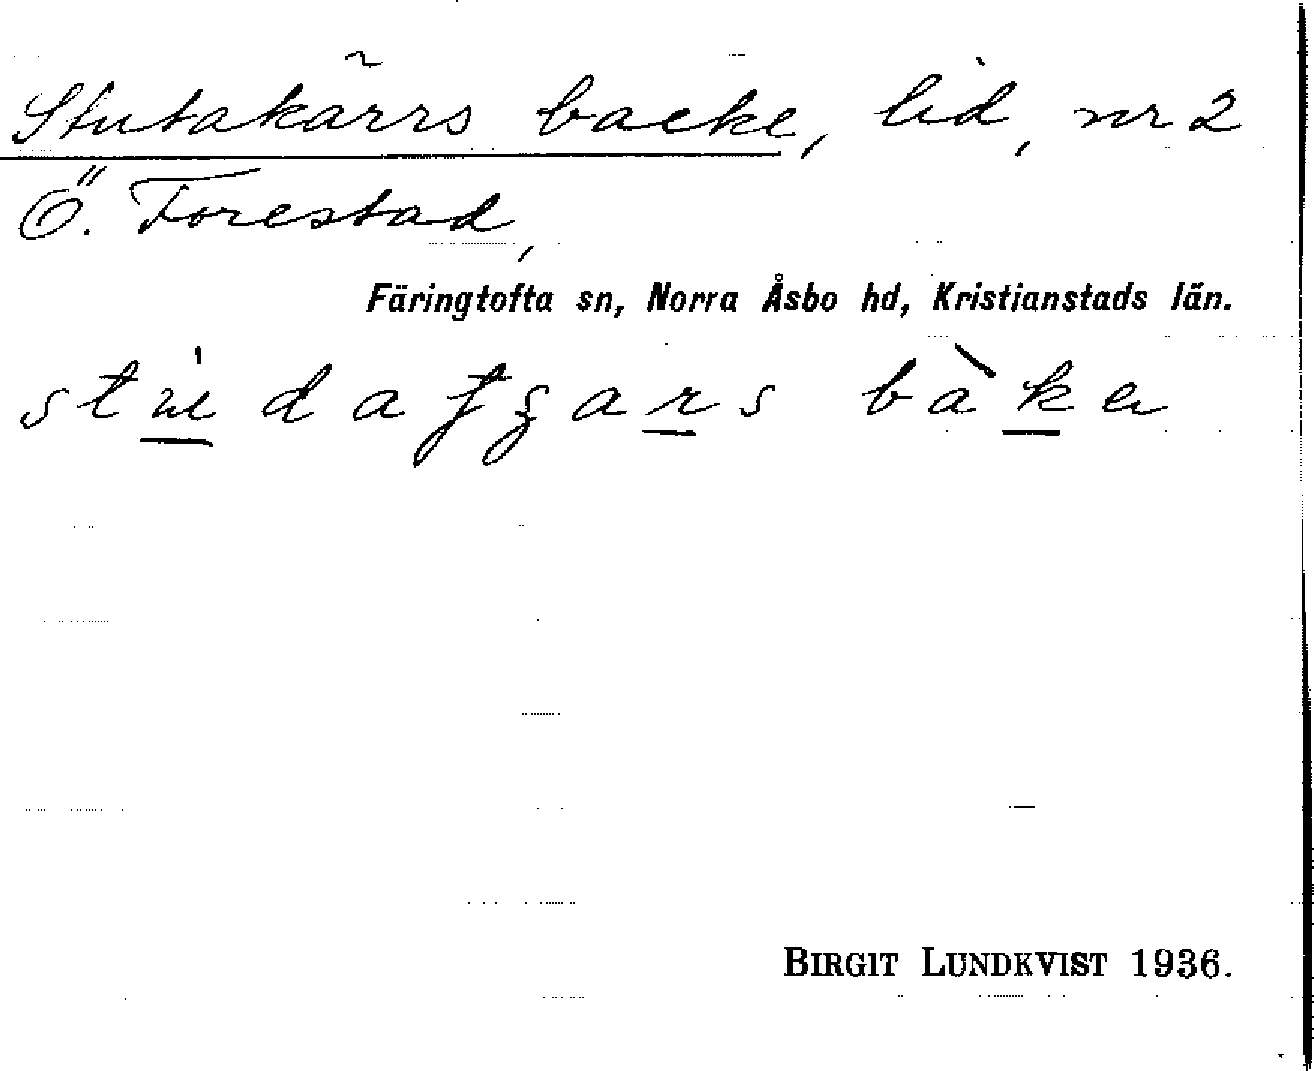 Stutakärrs backe, lid, nr 2
Ö. Forestad,
Färingtofta sn, Norra Åsbo hd, Kristianstads län.
bàka
BIRGIT LUNDKVIST 1936.